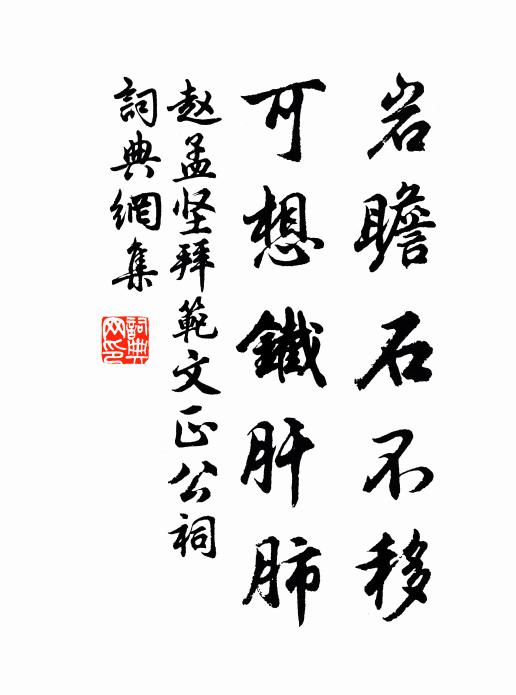 岩瞻石不移
可想鐵肝肺
赵孟坚拜範文正公祠
詞典網集
詞典網印